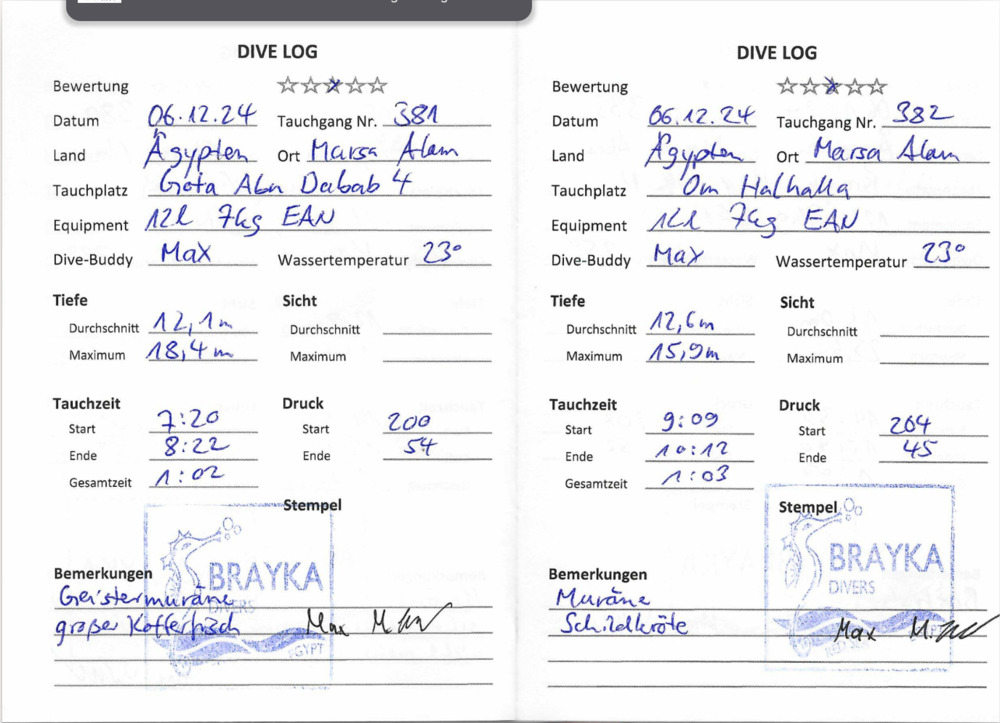 DIVE LOG
Bewertung
Datum 06.12.24 Tauchgang Nr. 381
Land Ägypten Ort Marsa Alam
Tauchplatz Gota Abu Dabab 4
Equipment 12l 7kg EAN
Dive-Buddy Max Wassertemperatur 23°
Tiefe Sicht
Durchschnitt 12,1m Durchschnitt
Maximum 18,4m Maximum
Tauchzeit Druck
Start 7:20 Start 200
Ende 8:22 Ende 54
Gesamtzeit 1:02
Stempel
BRAYKA
DIVERS
Bemerkungen
Geistermuräne
großer Kofferfisch Max M.
EGYPT
DIVE LOG
Bewertung
Datum 06.12.24 Tauchgang Nr. 382
Land Ägypten Ort Marsa Alam
Tauchplatz Om Halhalla
Equipment 12l 7kg EAN
Dive-Buddy Max Wassertemperatur 23°
Tiefe Sicht
Durchschnitt 12,6m Durchschnitt
Maximum 15,9m Maximum
Tauchzeit Druck
Start 9:09 Start 204
Ende 10:12 Ende 45
Gesamtzeit 1:03
Stempel
BRAYKA
DIVERS
Bemerkungen
Muräne
Schildkröte Max M.